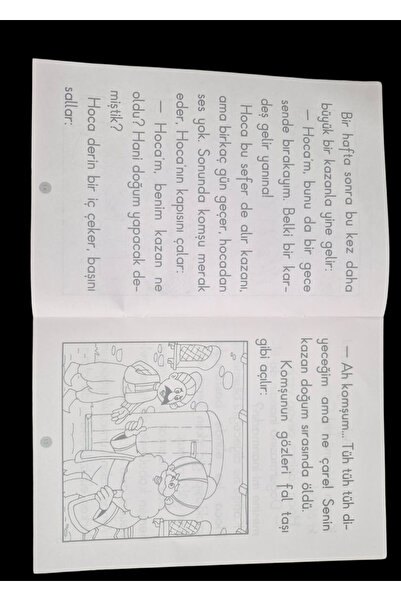 Bir hafta sonra bu kez daha
büyük bir kazanla yine gelir:
— Hoca'm, bunu da bir gece
sende bırakayım. Belki bir kar-
deş gelir yanına!
Hoca bu sefer de alır kazanı,
ama birkaç gün geçer, hocadan
ses yok. Sonunda komşu merak
eder, Hoca'nın kapısını çalar:
— Hoca'm, benim kazan ne
oldu? Hani doğum yapacak de-
miştik?
Hoca derin bir iç çeker, başını
sallar:
— Ah komşum... Tüh tüh tüh di-
yeceğim ama ne çare! Senin
kazan doğum sırasında öldü.
Komşunun gözleri fal taşı
gibi açılır: